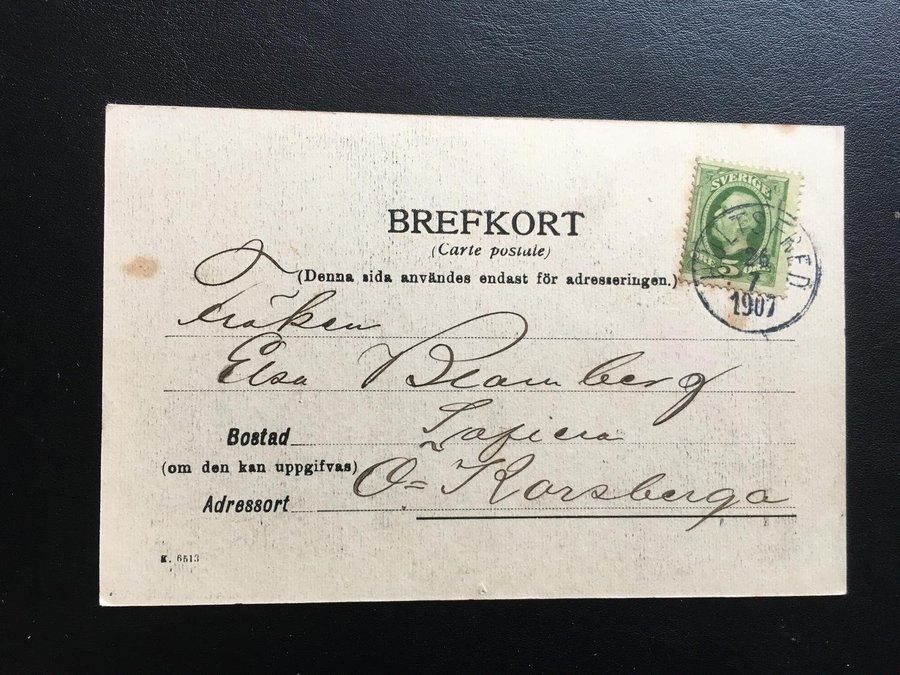 BREFKORT
(Carte postale)
(Denna sida användes endast för adresseringen.)
SVERIGE
5
26
1907
Fröken
Elsa
Bostad
(om den kan uppgifvas)
Adressort Ö= Korsberga
K. 6513